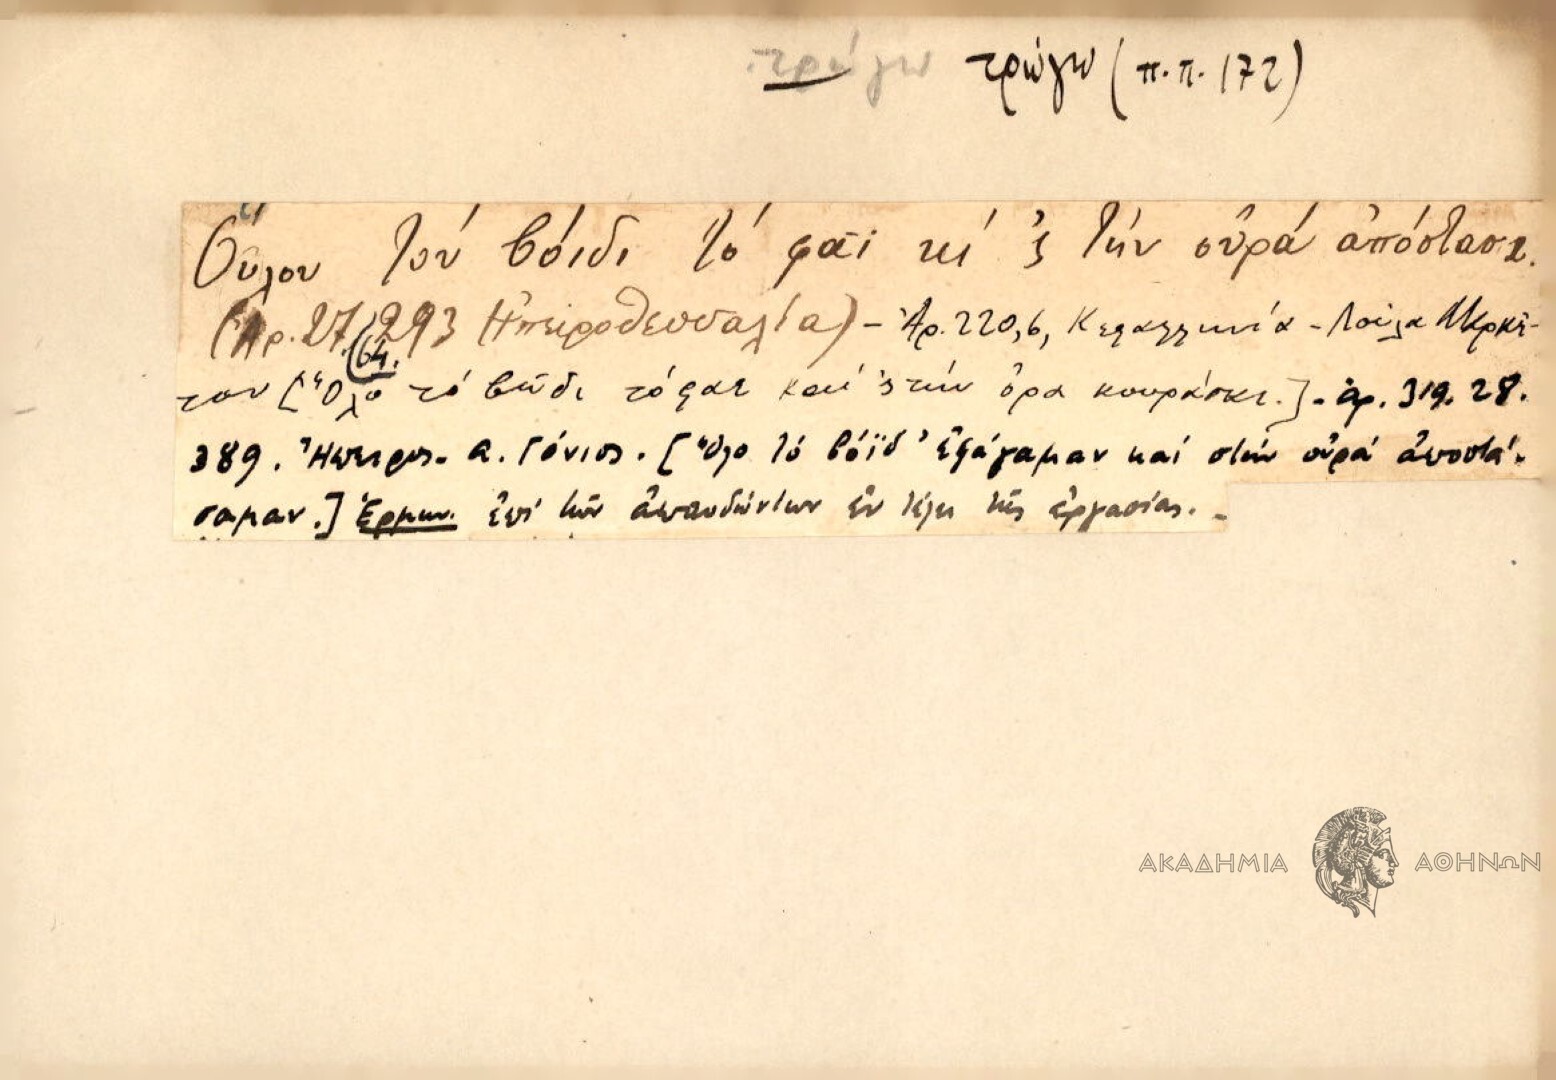 τρώγω τρώγω (π.π. 172)
Οὕλου τοὺ βόιδι τό φαϊ κί 'ς τὴν οὐρά ἀπόστασι.
(Ἀρ. 27, 293 Ἠπειροθεσσαλία) – Ἀρ. 220, 6, Κεφαλληνία –
64.
[Ὅλο τό βῶδι τόφαε καί 'ς τήν ὀρα κουράστκε.] – ἀρ. 319. 28.
389. Ἤπειρος – Α. Γόνιος. [Ὅλο τό βόϊδ' ἐφάγαμαν καί στήν οὐρά ἀποστά-
σαμαν.] Ἑρμην. ἐπί τῶν ἀπαυδώντων ἐν τέλει τῆς ἐργασίας. –
ΑΚΑΔΗΜΙΑ ΑΘΗΝΩΝ